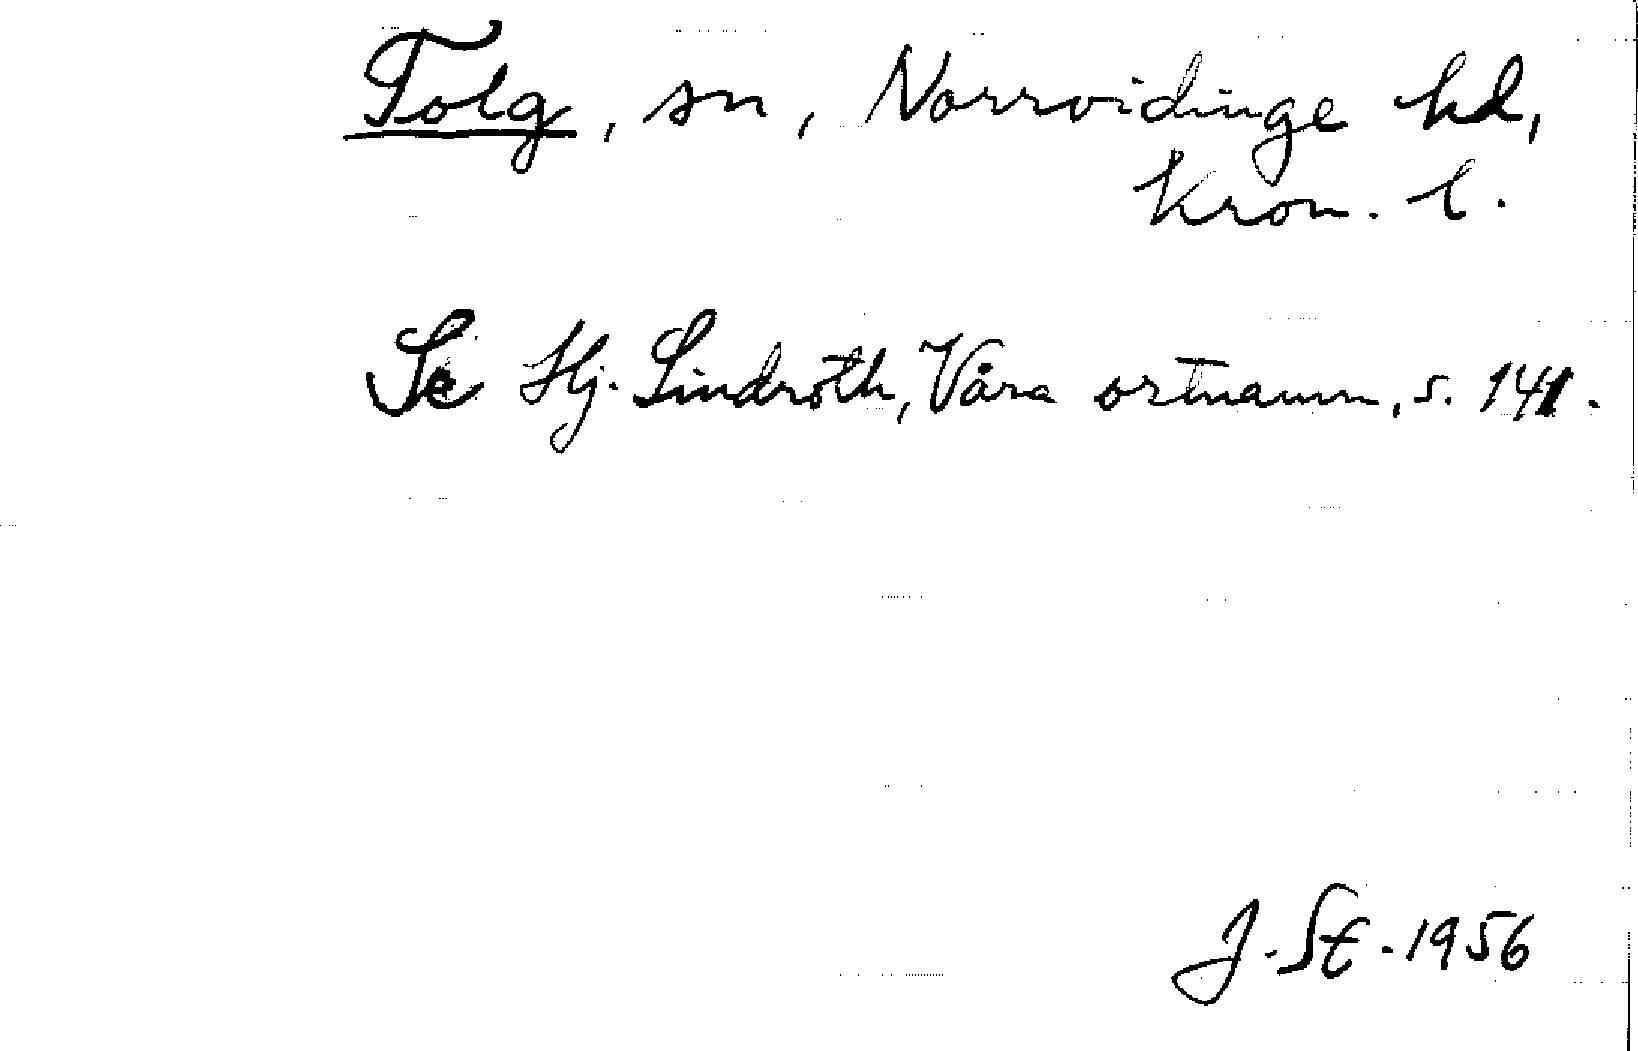 Tolg, sn, Norrvidinge hd,
Kron. l.
Se Hj. Lindroth, Våra ortnamn, s. 141.
J. St. 1956